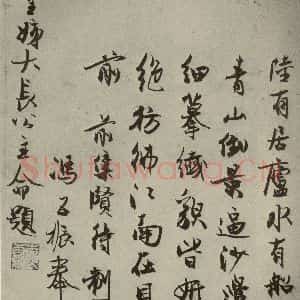 陸有居廬水有船
青山倒景逼沙邊
細摹纖貌皆妍
絕彷彿江南在目
前 前集賢待制
馮子振奉
皇姊大長公主命題
Shufawang.Cn